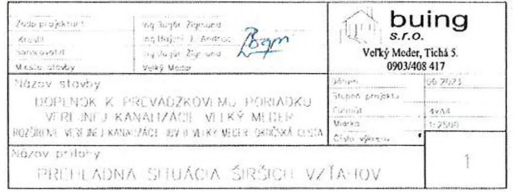 Zodp. projektant
Ing. Gugár Zigmund
Kreslil
Ing. 
Vypracoval
Ing. Gugár Zigmund
Miesto stavby
Veľký Meder
buing
s.r.o.
Veľký Meder, Tichá 5.
0903/408 417
Názov stavby
DOPLNOK K PREVÁDZKOVÉMU PORIADKU
VEREJNEJ KANALIZÁCIE VEĽKÝ MEDER
ROZŠÍRENIE VEREJNEJ KANALIZÁCIE VEĽKÝ MEDER, CESTA
Dátum
06.2023
Stupeň projektu
Formát
4xA4
Mierka
1:2500
Číslo výkresu
Názov prílohy
PREHĽADNÁ SITUÁCIA ŠIRŠÍCH VZŤAHOV
1